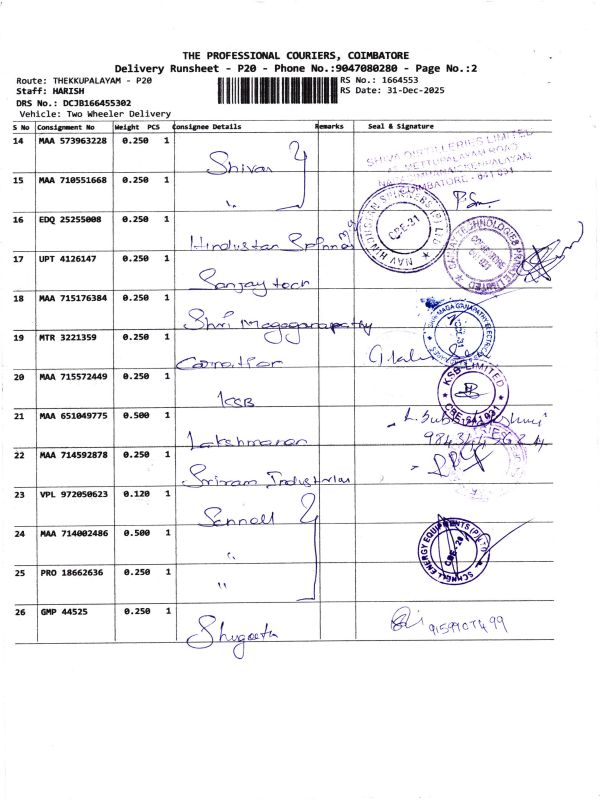 THE PROFESSIONAL COURIERS, COIMBATORE
Delivery Runsheet - P20 - Phone No.:9047080280 - Page No.:2
Route: THEKKUPALAYAM - P20
RS No.: 1664553
Staff: HARISH
RS Date: 31-Dec-2025
DRS No.: DCJB166455302
Vehicle: Two Wheeler Delivery
S No Consignment No Weight PCS Consignee Details Remarks Seal & Signature
14 MAA 573963228 0.250 1
SHIVA DISTILLERIES LIMITED
METTUPALAYAM ROAD
COIMBATORE - 641 031
15 MAA 710551668 0.250 1 "
16 EDQ 25255008 0.250 1 Hindustan
NAV HINDUSTAN SPINNERS (P) LTD
CBE-31
17 UPT 4126147 0.250 1 Sanjay tech
SANJAY TECHNOLOGIES PRIVATE LIMITED
COIMBATORE
641 031
18 MAA 715176384 0.250 1 Shri
19 MTR 3221359 0.250 1
20 MAA 715572449 0.250 1 KSB
KSB LIMITED
CBE-641 031
21 MAA 651049775 0.500 1 Lakshmanan
22 MAA 714592878 0.250 1 Sriram Industries
23 VPL 972050623 0.120 1
24 MAA 714002486 0.500 1 "
SCHNELL ENERGY EQUIPMENTS (P) LTD
CBE-20
25 PRO 18662636 0.250 1 "
26 GMP 44525 0.250 1